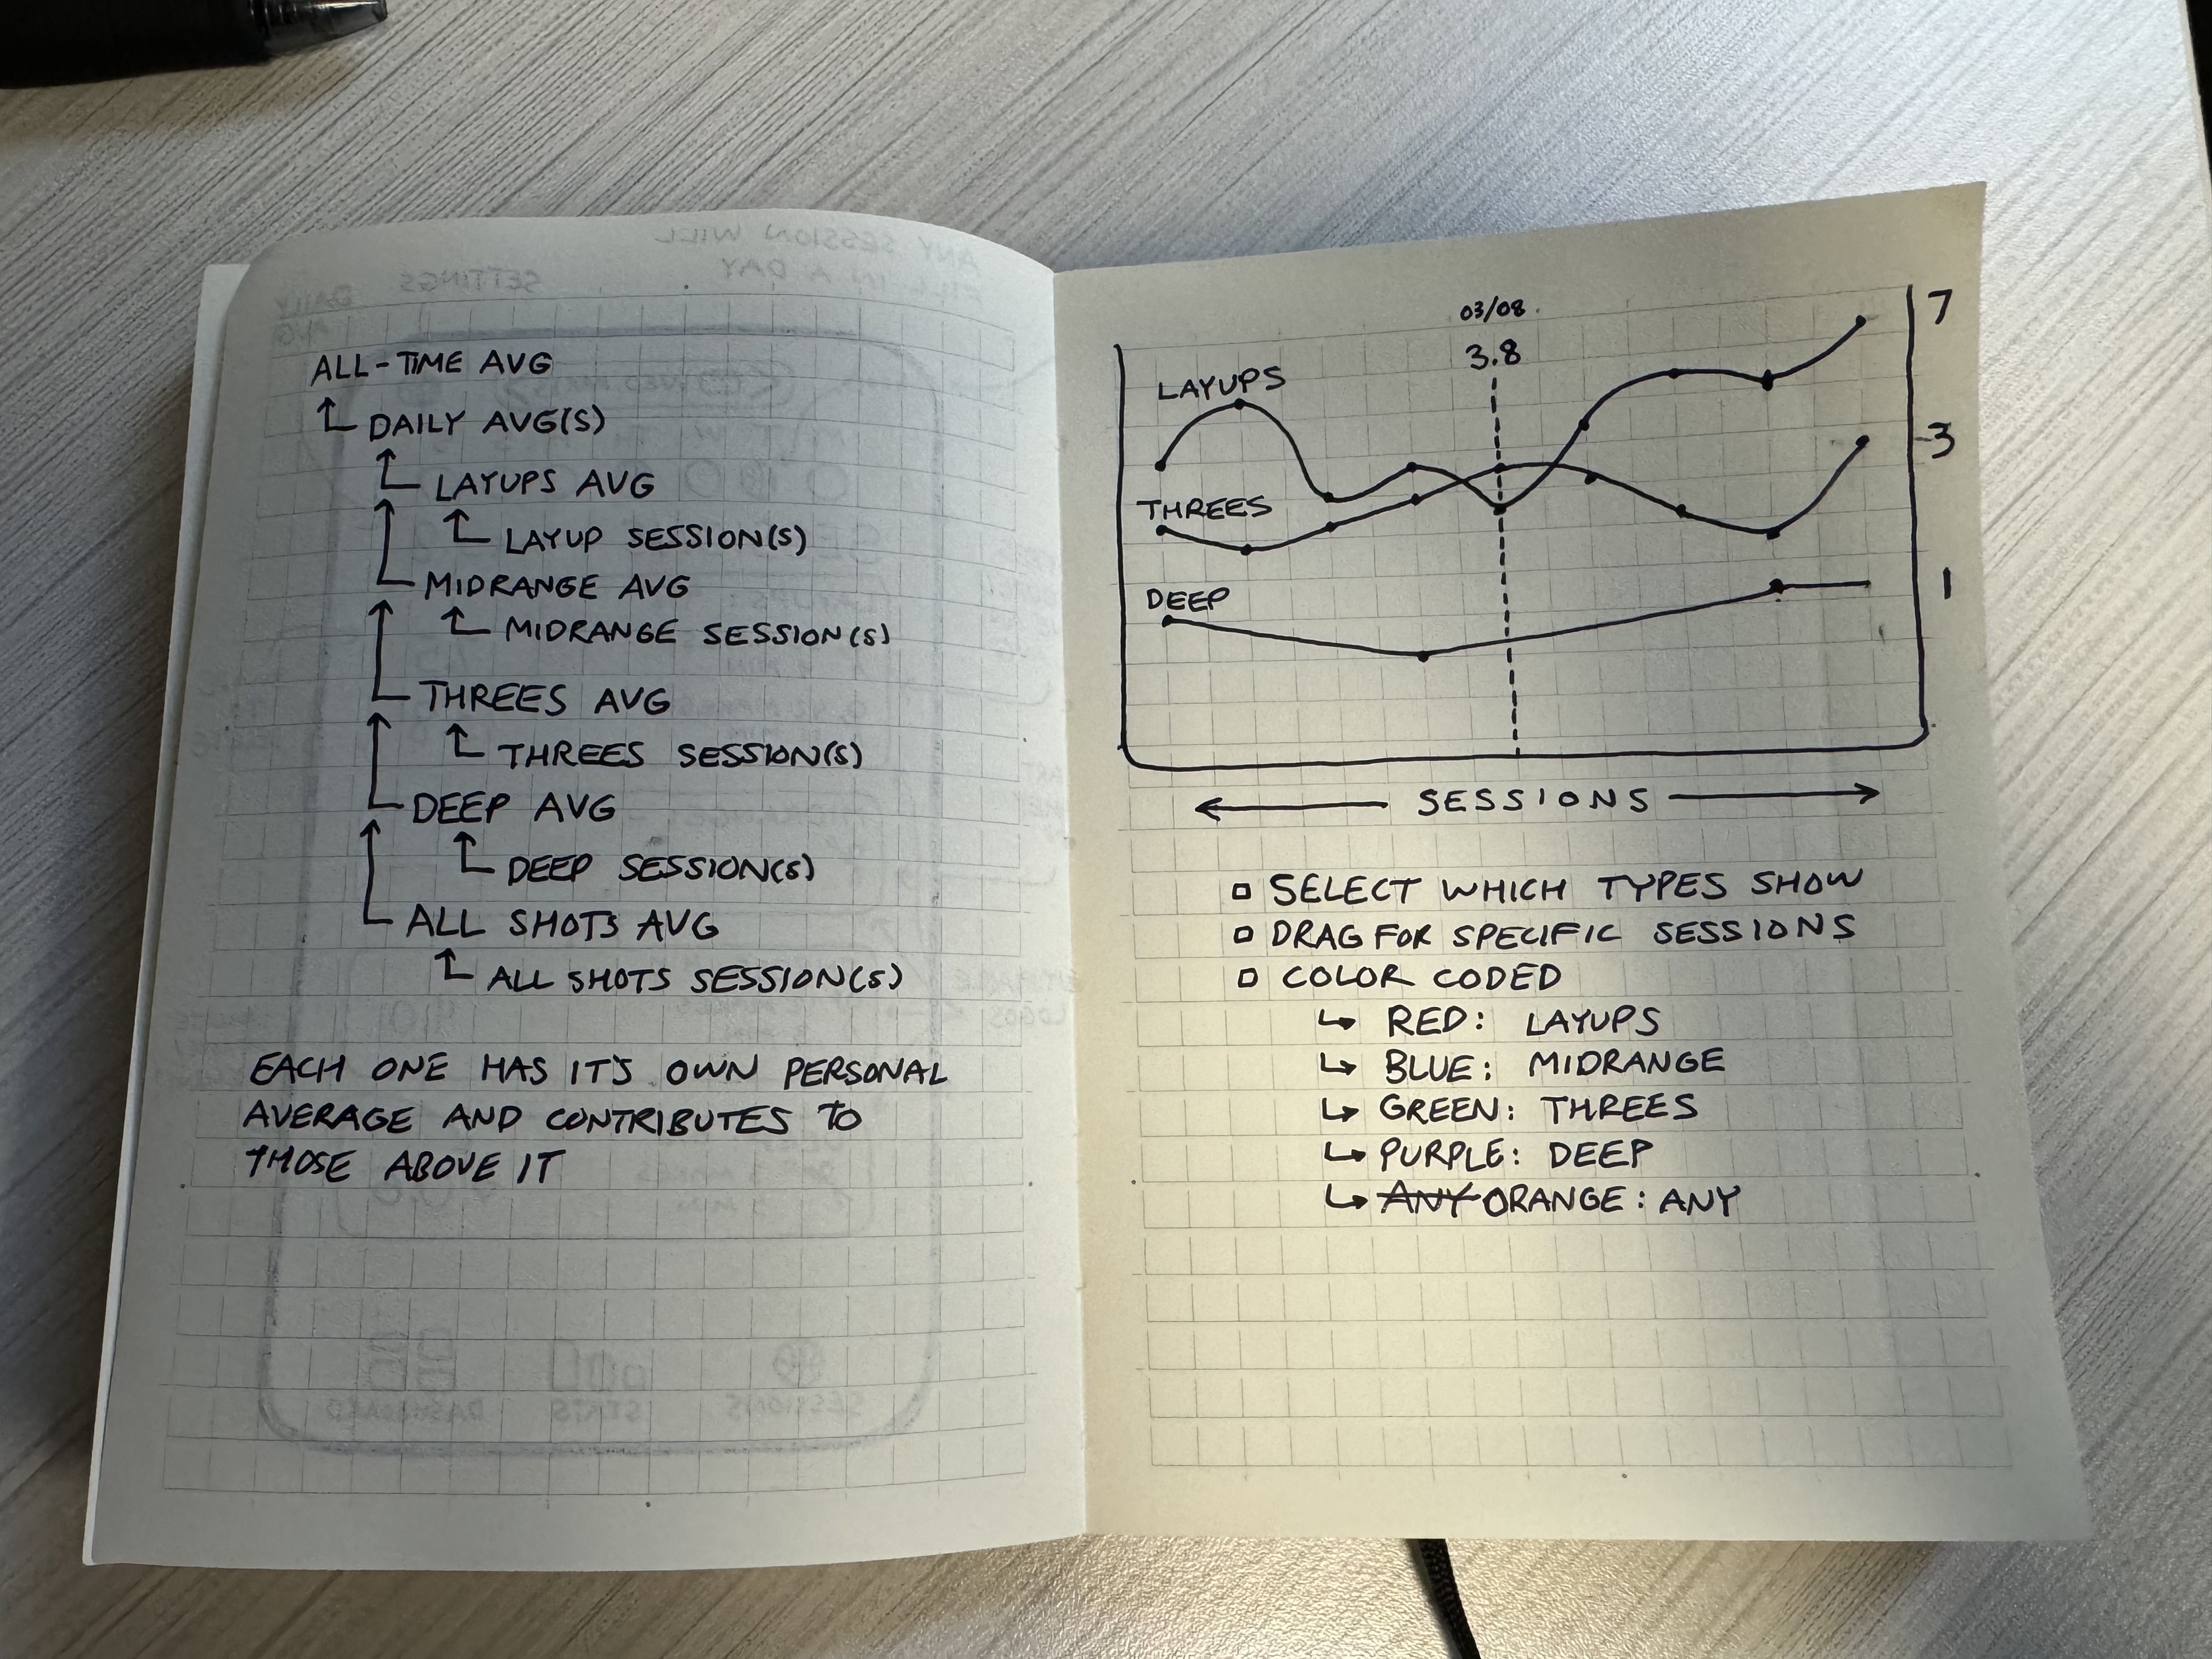 ALL-TIME AVG
DAILY AVG(S)
LAYUPS AVG
LAYUP SESSION(S)
MIDRANGE AVG
MIDRANGE SESSION(S)
THREES AVG
THREES SESSION(S)
DEEP AVG
DEEP SESSION(S)
ALL SHOTS AVG
ALL SHOTS SESSION(S)
EACH ONE HAS IT'S OWN PERSONAL
AVERAGE AND CONTRIBUTES TO
THOSE ABOVE IT
03/08
3.8
7
LAYUPS
3
THREES
1
DEEP
SESSIONS
SELECT WHICH TYPES SHOW
DRAG FOR SPECIFIC SESSIONS
COLOR CODED
RED: LAYUPS
BLUE: MIDRANGE
GREEN: THREES
PURPLE: DEEP
ANY ORANGE: ANY
ANY SESSION WILL
FILL IN A DAY
SETTINGS
DAILY
AVG
SESSIONS
STATS
DASHBOARD